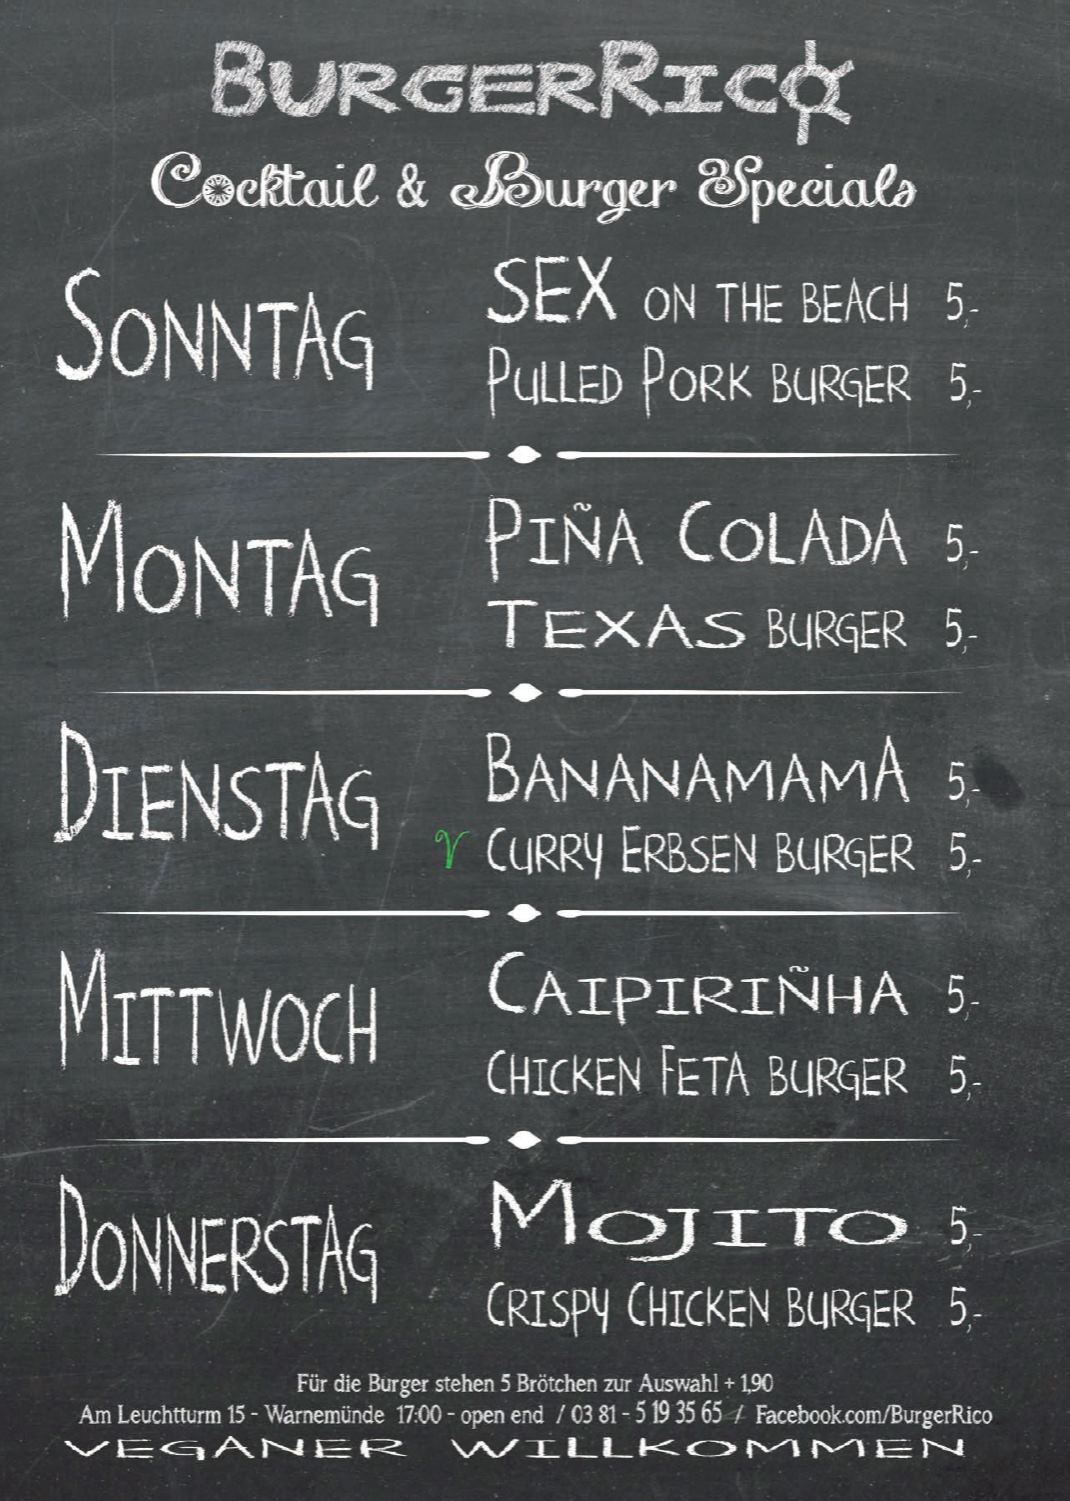 BURGERRICO
Cocktail & Burger Specials
SONNTAG
SEX ON THE BEACH 5,-
PULLED PORK BURGER 5,-
MONTAG
PIÑA COLADA 5,-
TEXAS BURGER 5,-
DIENSTAG
BANANAMAMA 5,-
V CURRY ERBSEN BURGER 5,-
MITTWOCH
CAIPIRIÑHA 5,-
CHICKEN FETA BURGER 5,-
DONNERSTAG
MOJITO 5,-
CRISPY CHICKEN BURGER 5,-
Für die Burger stehen 5 Brötchen zur Auswahl + 1,90
Am Leuchtturm 15 - Warnemünde 17:00 - open end / 03 81 - 5 19 35 65 / Facebook.com/BurgerRico
VEGANER WILLKOMMEN